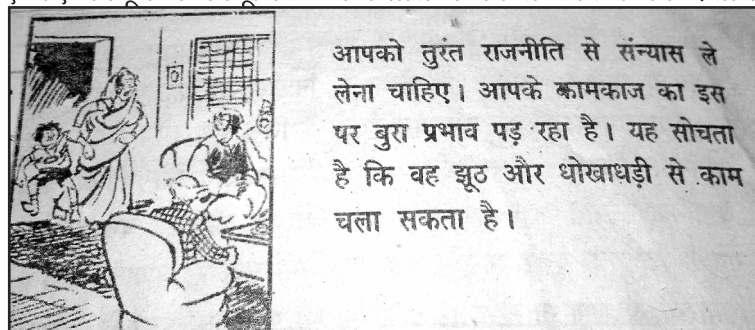 आपको तुरंत राजनीति से संन्यास ले
लेना चाहिए। आपके कामकाज का इस
पर बुरा प्रभाव पड़ रहा है। यह सोचता
है कि वह झूठ और धोखाधड़ी से काम
चला सकता है।